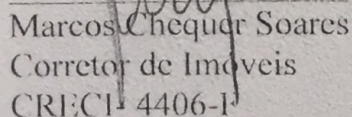 Marcos Chequer Soares
Corretor de Imóveis
CRECI- 4406-F